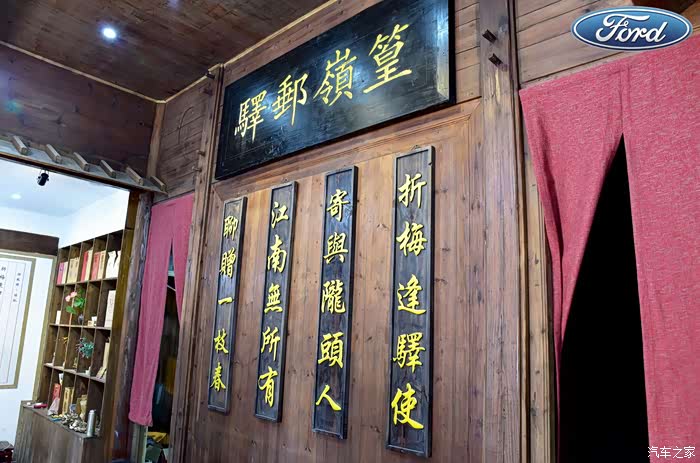 Ford
篁嶺郵驛
折梅逢驛使
寄與隴頭人
江南無所有
聊贈一枝春
汽车之家